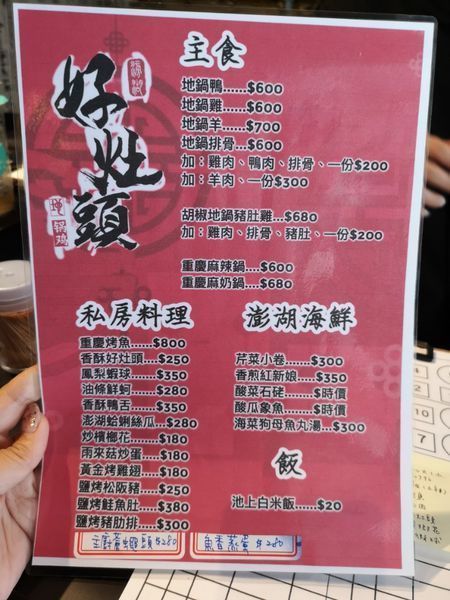 好灶頭
地鍋鷄
主食
地鍋鴨......$600
地鍋雞......$600
地鍋羊......$700
地鍋排骨...$600
加：雞肉、鴨肉、排骨、一份$200
加：羊肉、一份$300
胡椒地鍋豬肚雞...$680
加：雞肉、排骨、豬肚、一份$200
重慶麻辣鍋...$600
重慶麻奶鍋...$680
私房料理
重慶烤魚.......$800
香酥好灶頭...$250
鳳梨蝦球......$350
油條鮮蚵......$280
香酥鴨舌......$350
澎湖蛤蜊絲瓜...$280
炒檳榔花......$180
雨來菇炒蛋...$180
黃金烤雞翅...$180
鹽烤松阪豬...$250
鹽烤鮭魚肚...$380
鹽烤豬肋排...$300
主廚蒼蠅頭$280
魚香蒸蛋 $280
澎湖海鮮
芹菜小卷......$300
香煎紅新娘...$350
酸菜石硓......$時價
酸瓜象魚......$時價
海菜狗母魚丸湯...$300
飯
池上白米飯......$20